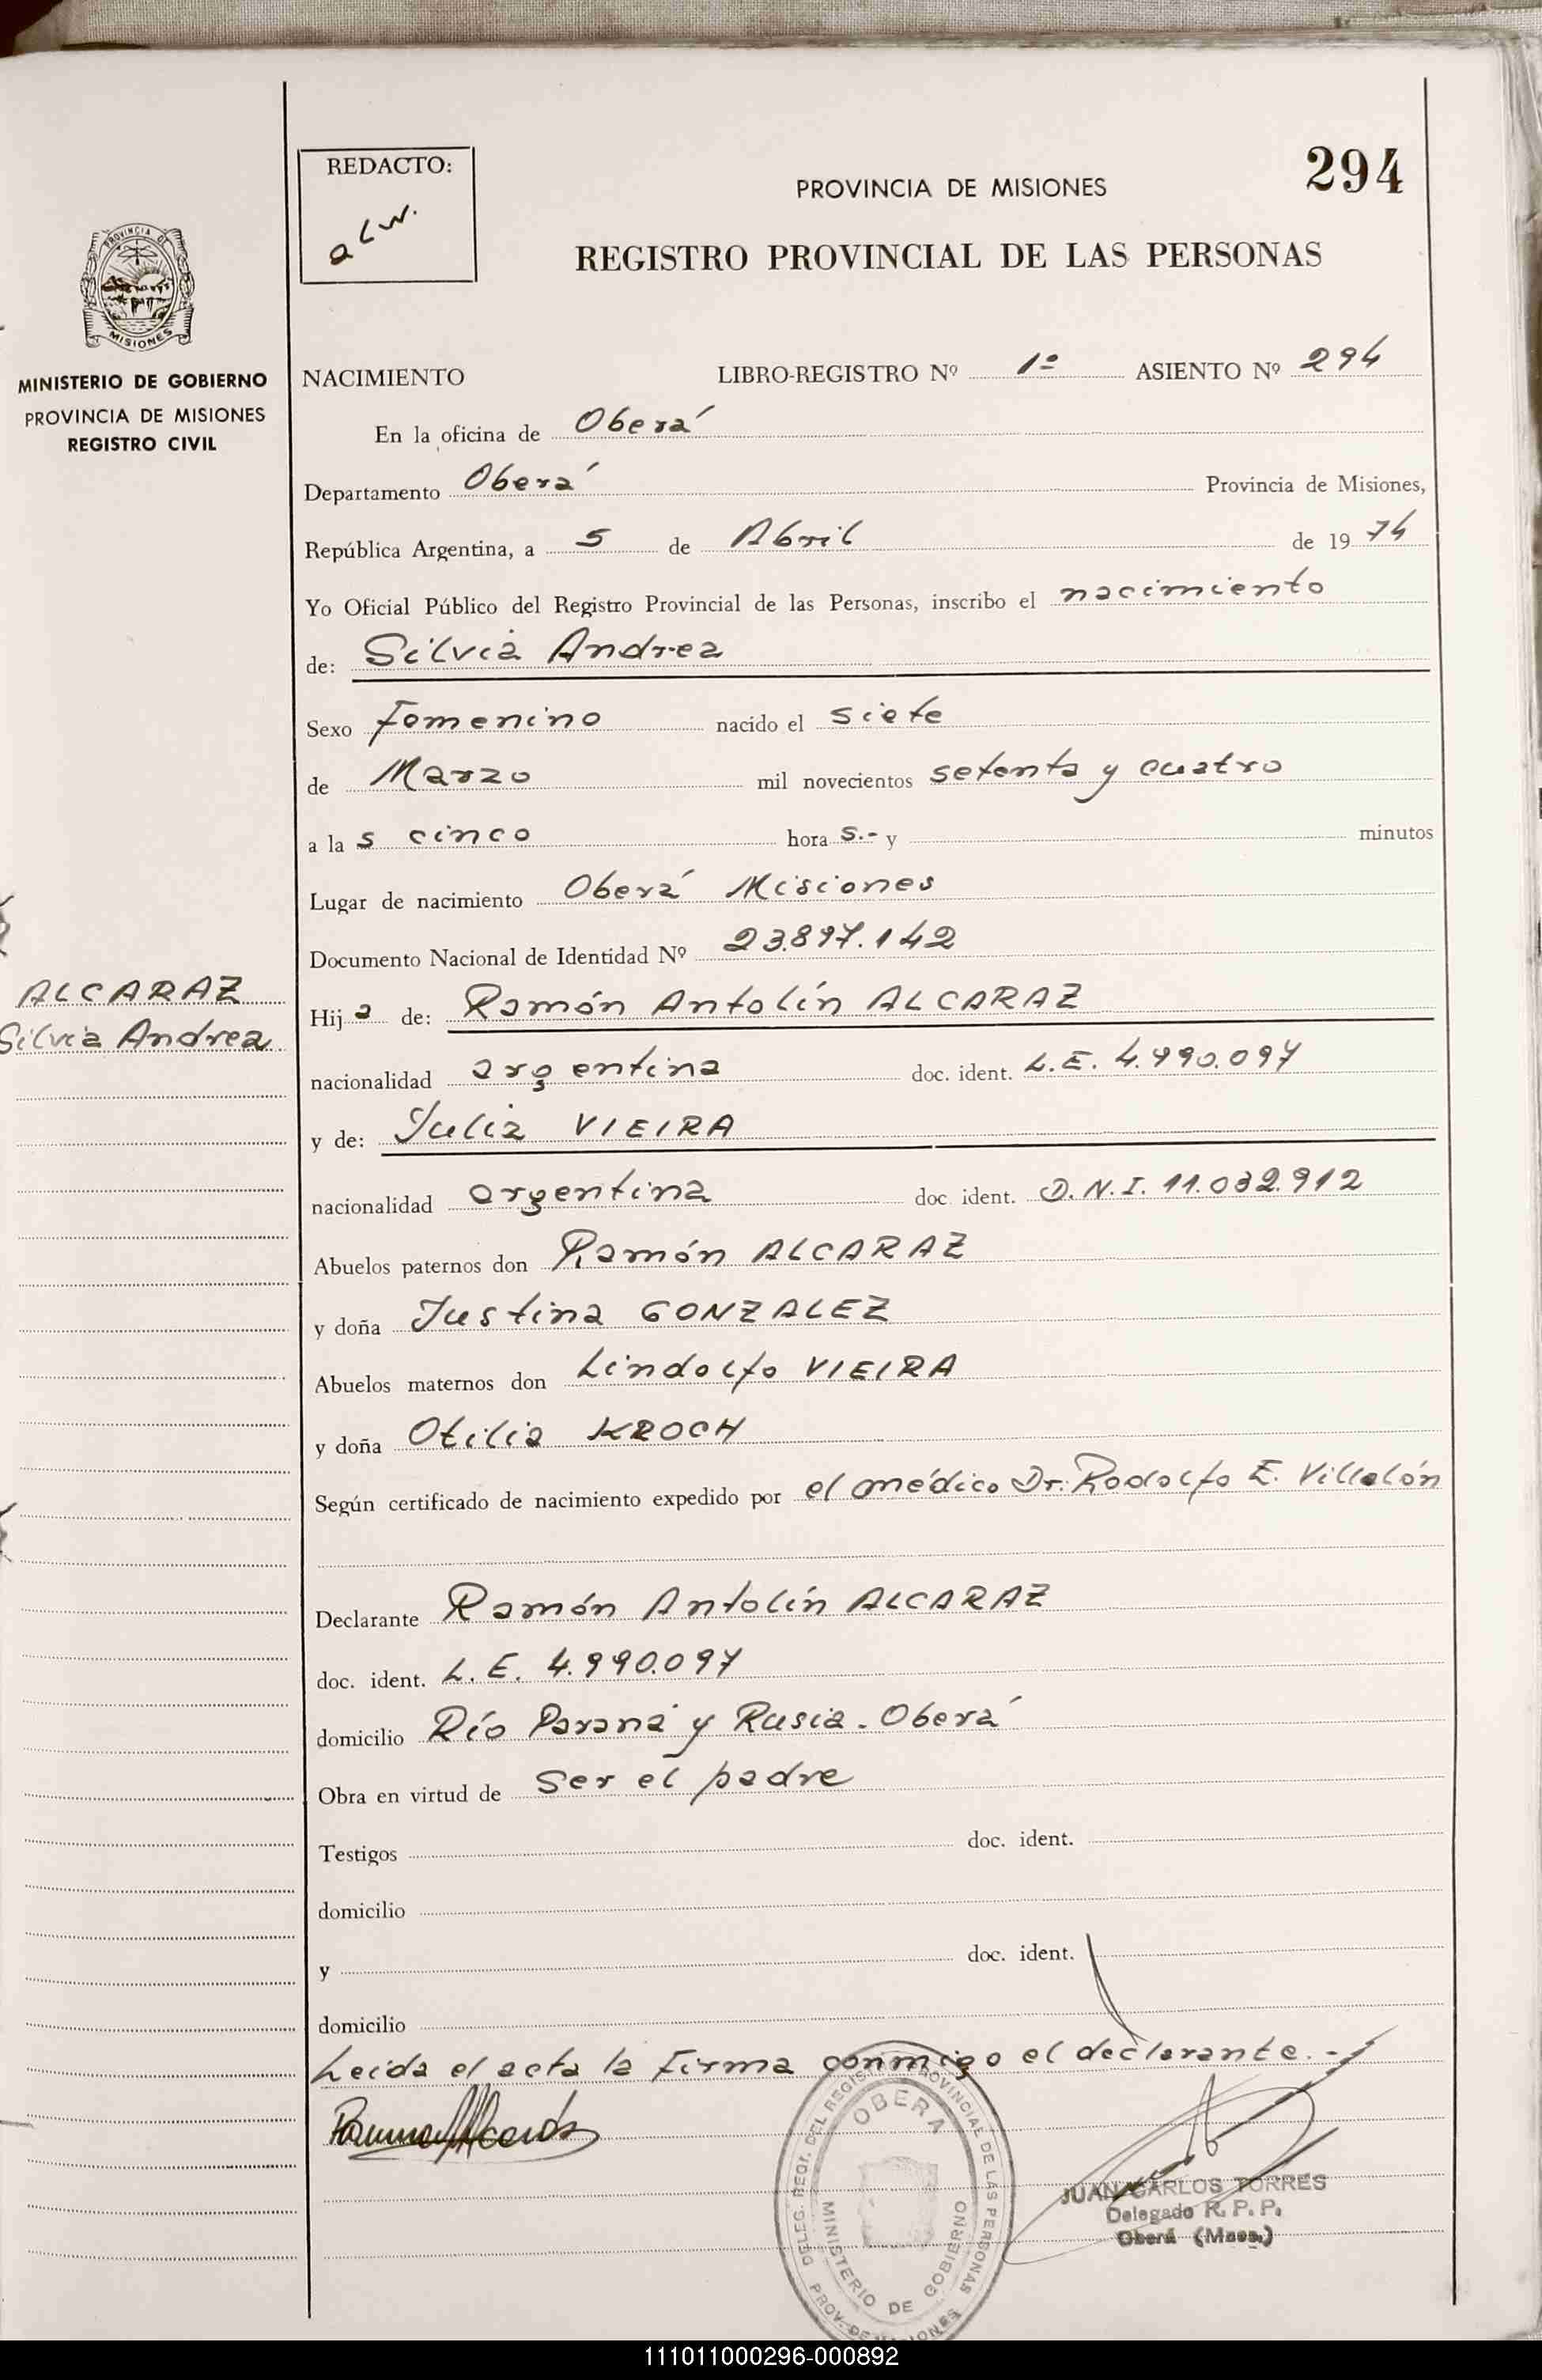 294
REDACTO:
alw.
PROVINCIA DE MISIONES
REGISTRO PROVINCIAL DE LAS PERSONAS
PROVINCIA DE
MISIONES
MINISTERIO DE GOBIERNO
PROVINCIA DE MISIONES
REGISTRO CIVIL
NACIMIENTO LIBRO-REGISTRO Nº 1º ASIENTO Nº 294
En la oficina de Oberá
Departamento Oberá Provincia de Misiones,
República Argentina, a 5 de Abril de 1974
Yo Oficial Público del Registro Provincial de las Personas, inscribo el nacimiento
de: Silvia Andrea
Sexo Femenino nacido el siete
de Marzo mil novecientos setenta y cuatro
a la s cinco hora s.- y minutos
Lugar de nacimiento Oberá Misiones
Documento Nacional de Identidad Nº 23.897.142
ALCARAZ
Silvia Andrea
Hija de: Ramón Antolín ALCARAZ
nacionalidad argentina doc. ident. L.E. 4.990.097
y de: Julia VIEIRA
nacionalidad argentina doc ident. D.N.I. 11.032.912
Abuelos paternos don Ramón ALCARAZ
y doña Justina GONZALEZ
Abuelos maternos don Lindolfo VIEIRA
y doña Otilia KROCH
Según certificado de nacimiento expedido por el médico Dr. Rodolfo E. Villalón
Declarante Ramón Antolín ALCARAZ
doc. ident. L.E. 4.990.097
domicilio Río Paraná y Rusia. Oberá
Obra en virtud de ser el padre
Testigos doc. ident.
domicilio
y doc. ident.
domicilio
Leída el acta la firma conmigo el declarante.-
DELEG. REGT. DEL REGISTRO PROVINCIAL DE LAS PERSONAS
OBERA
MINISTERIO DE GOBIERNO
PROV. DE MISIONES
JUAN CARLOS TORRES
Delegado R.P.P.
Oberá (Mnes.)
111011000296-000892